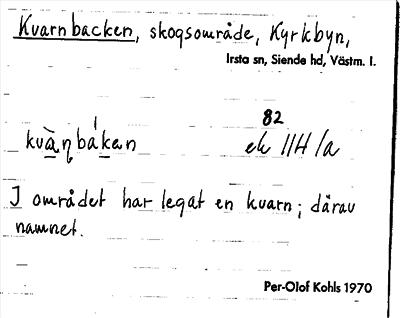 Kvarnbacken, skogsområde, Kyrkbyn,
Irsta sn, Siende hd, Västm. l.
82
kvàṇbákan ek 11H1a
I området har legat en kvarn; därav
namnet.
Per-Olof Kohls 1970